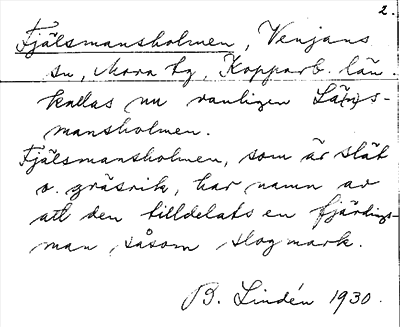 2.
Fjälsmansholmen, Venjans
sn, Mora tg, Kopparb. län.
kallas nu vanligen Lä(n)s-
mansholmen.
Fjälsmansholmen, som är slät
o. gräsrik, har namn av
att den tilldelats en fjärdings-
man, såsom slogmark.
B. Lindén 1930.